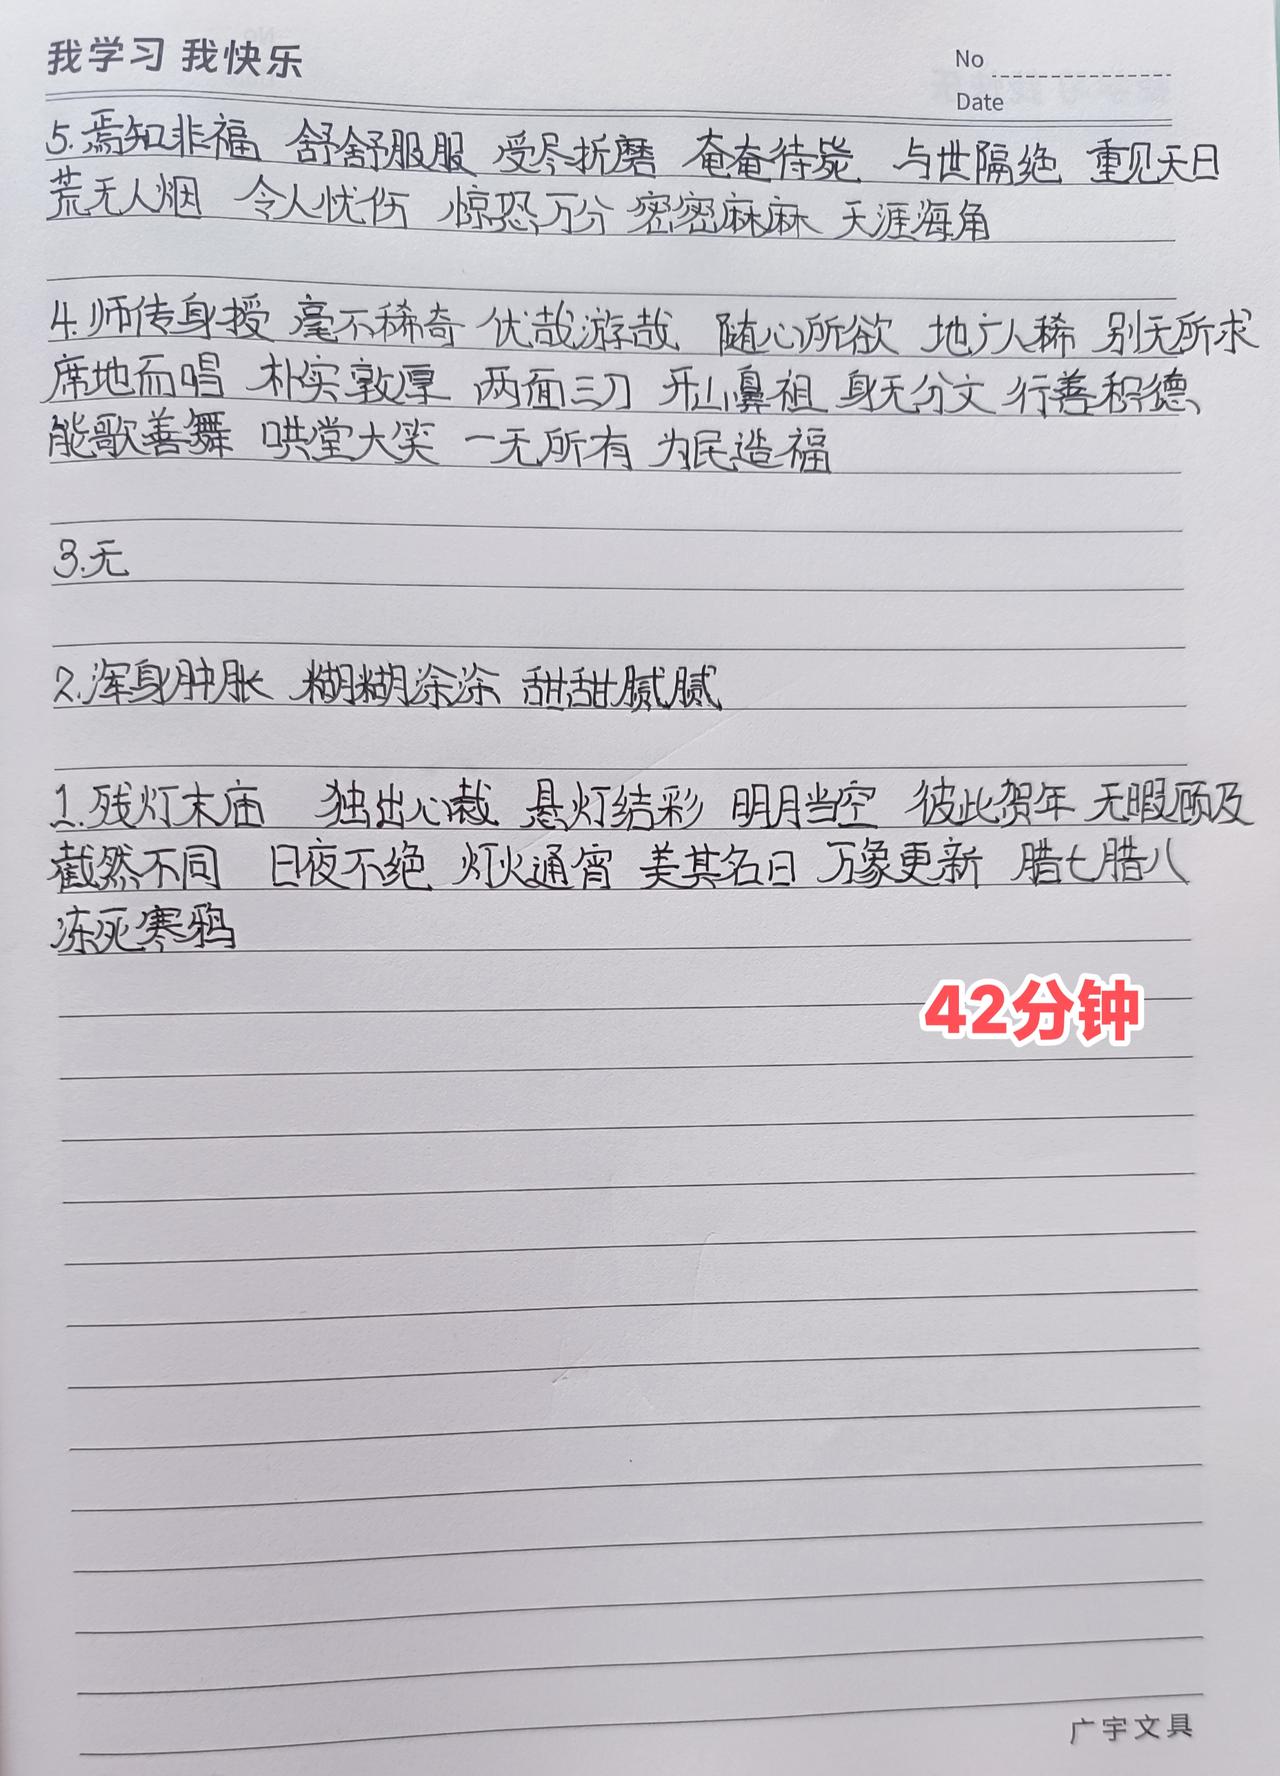 我学习 我快乐
No
Date
5.焉知非福 舒舒服服 受尽折磨 奄奄待毙 与世隔绝 重见天日
荒无人烟 令人忧伤 惊恐万分 密密麻麻 天涯海角
4.师传身授 毫不稀奇 优哉游哉 随心所欲 地广人稀 别无所求
席地而唱 朴实敦厚 两面三刀 开山鼻祖 身无分文 行善积德
能歌善舞 哄堂大笑 一无所有 为民造福
3.无
2.浑身肿胀 糊糊涂涂 甜甜腻腻
1.残灯末庙 独出心裁 悬灯结彩 明月当空 彼此贺年 无暇顾及
截然不同 日夜不绝 灯火通宵 美其名曰 万象更新 腊七腊八
冻死寒鸦
42分钟
广宇文具